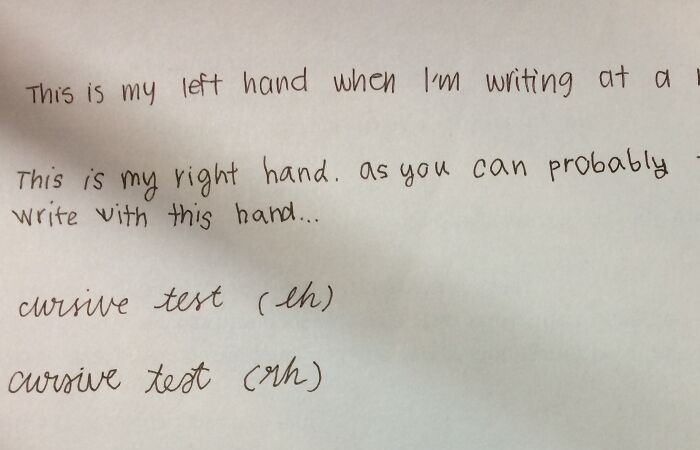 This is my left hand when I'm writing at a
This is my right hand. as you can probably
write with this hand...
cursive test (lh)
cursive test (rh)